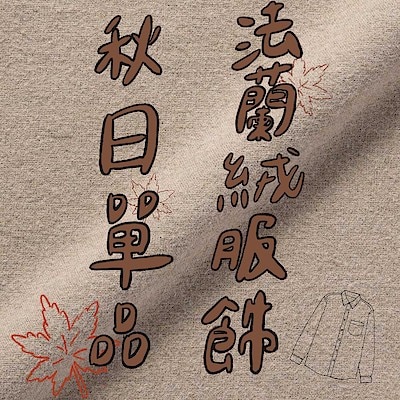 法蘭絨服飾
秋日單品